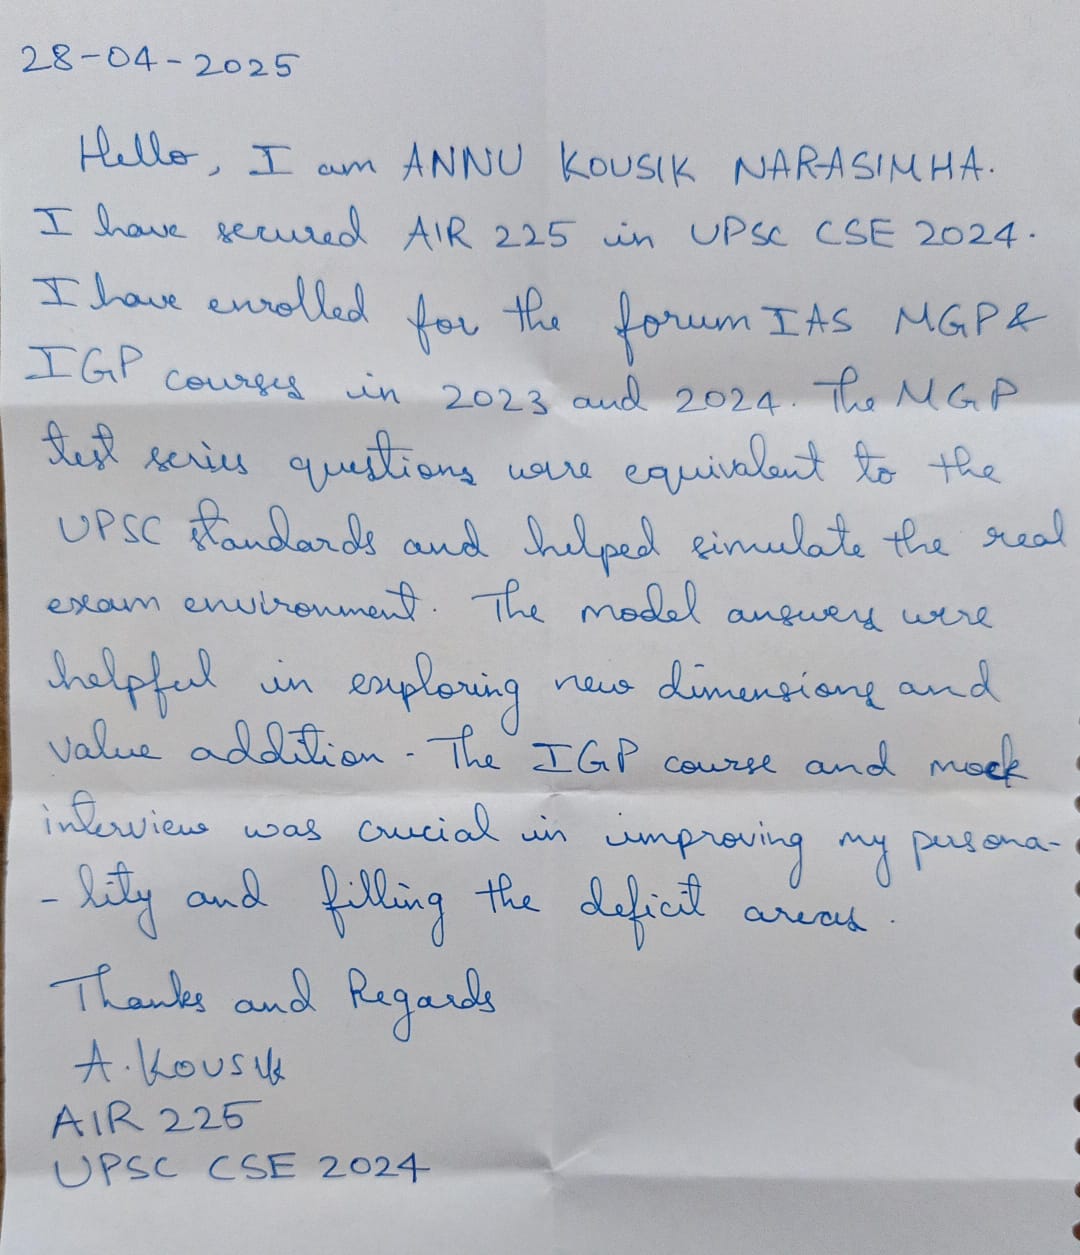 28-04-2025
Hello, I am ANNU KOUSIK NARASIMHA.
I have secured AIR 225 in UPSC CSE 2024.
I have enrolled for the forum IAS MGP &
IGP courses in 2023 and 2024. The MGP
test series questions were equivalent to the
UPSC standards and helped simulate the real
exam environment. The model answers were
helpful in exploring new dimensions and
value addition. The IGP course and mock
interview was crucial in improving my persona-
-lity and filling the deficit areas.
Thanks and Regards
A. Kousik
AIR 225
UPSC CSE 2024